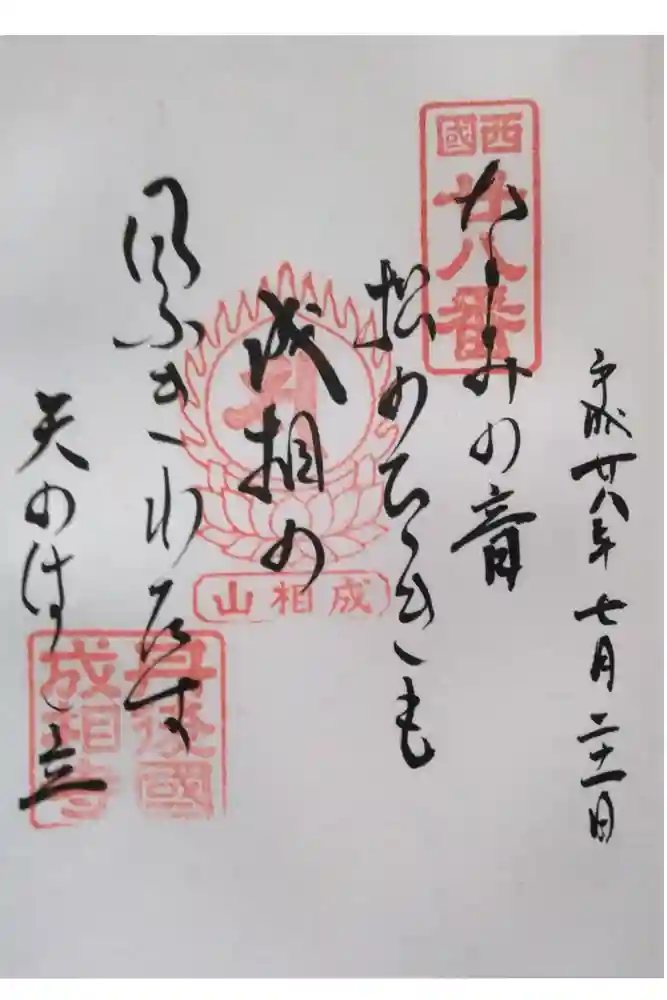 平成廿八年七月二十一日
西國
廿八番
なみの音
松のひゞきも
成相の
風ふきわたす
天のはし立
成相山
丹後國
成相寺